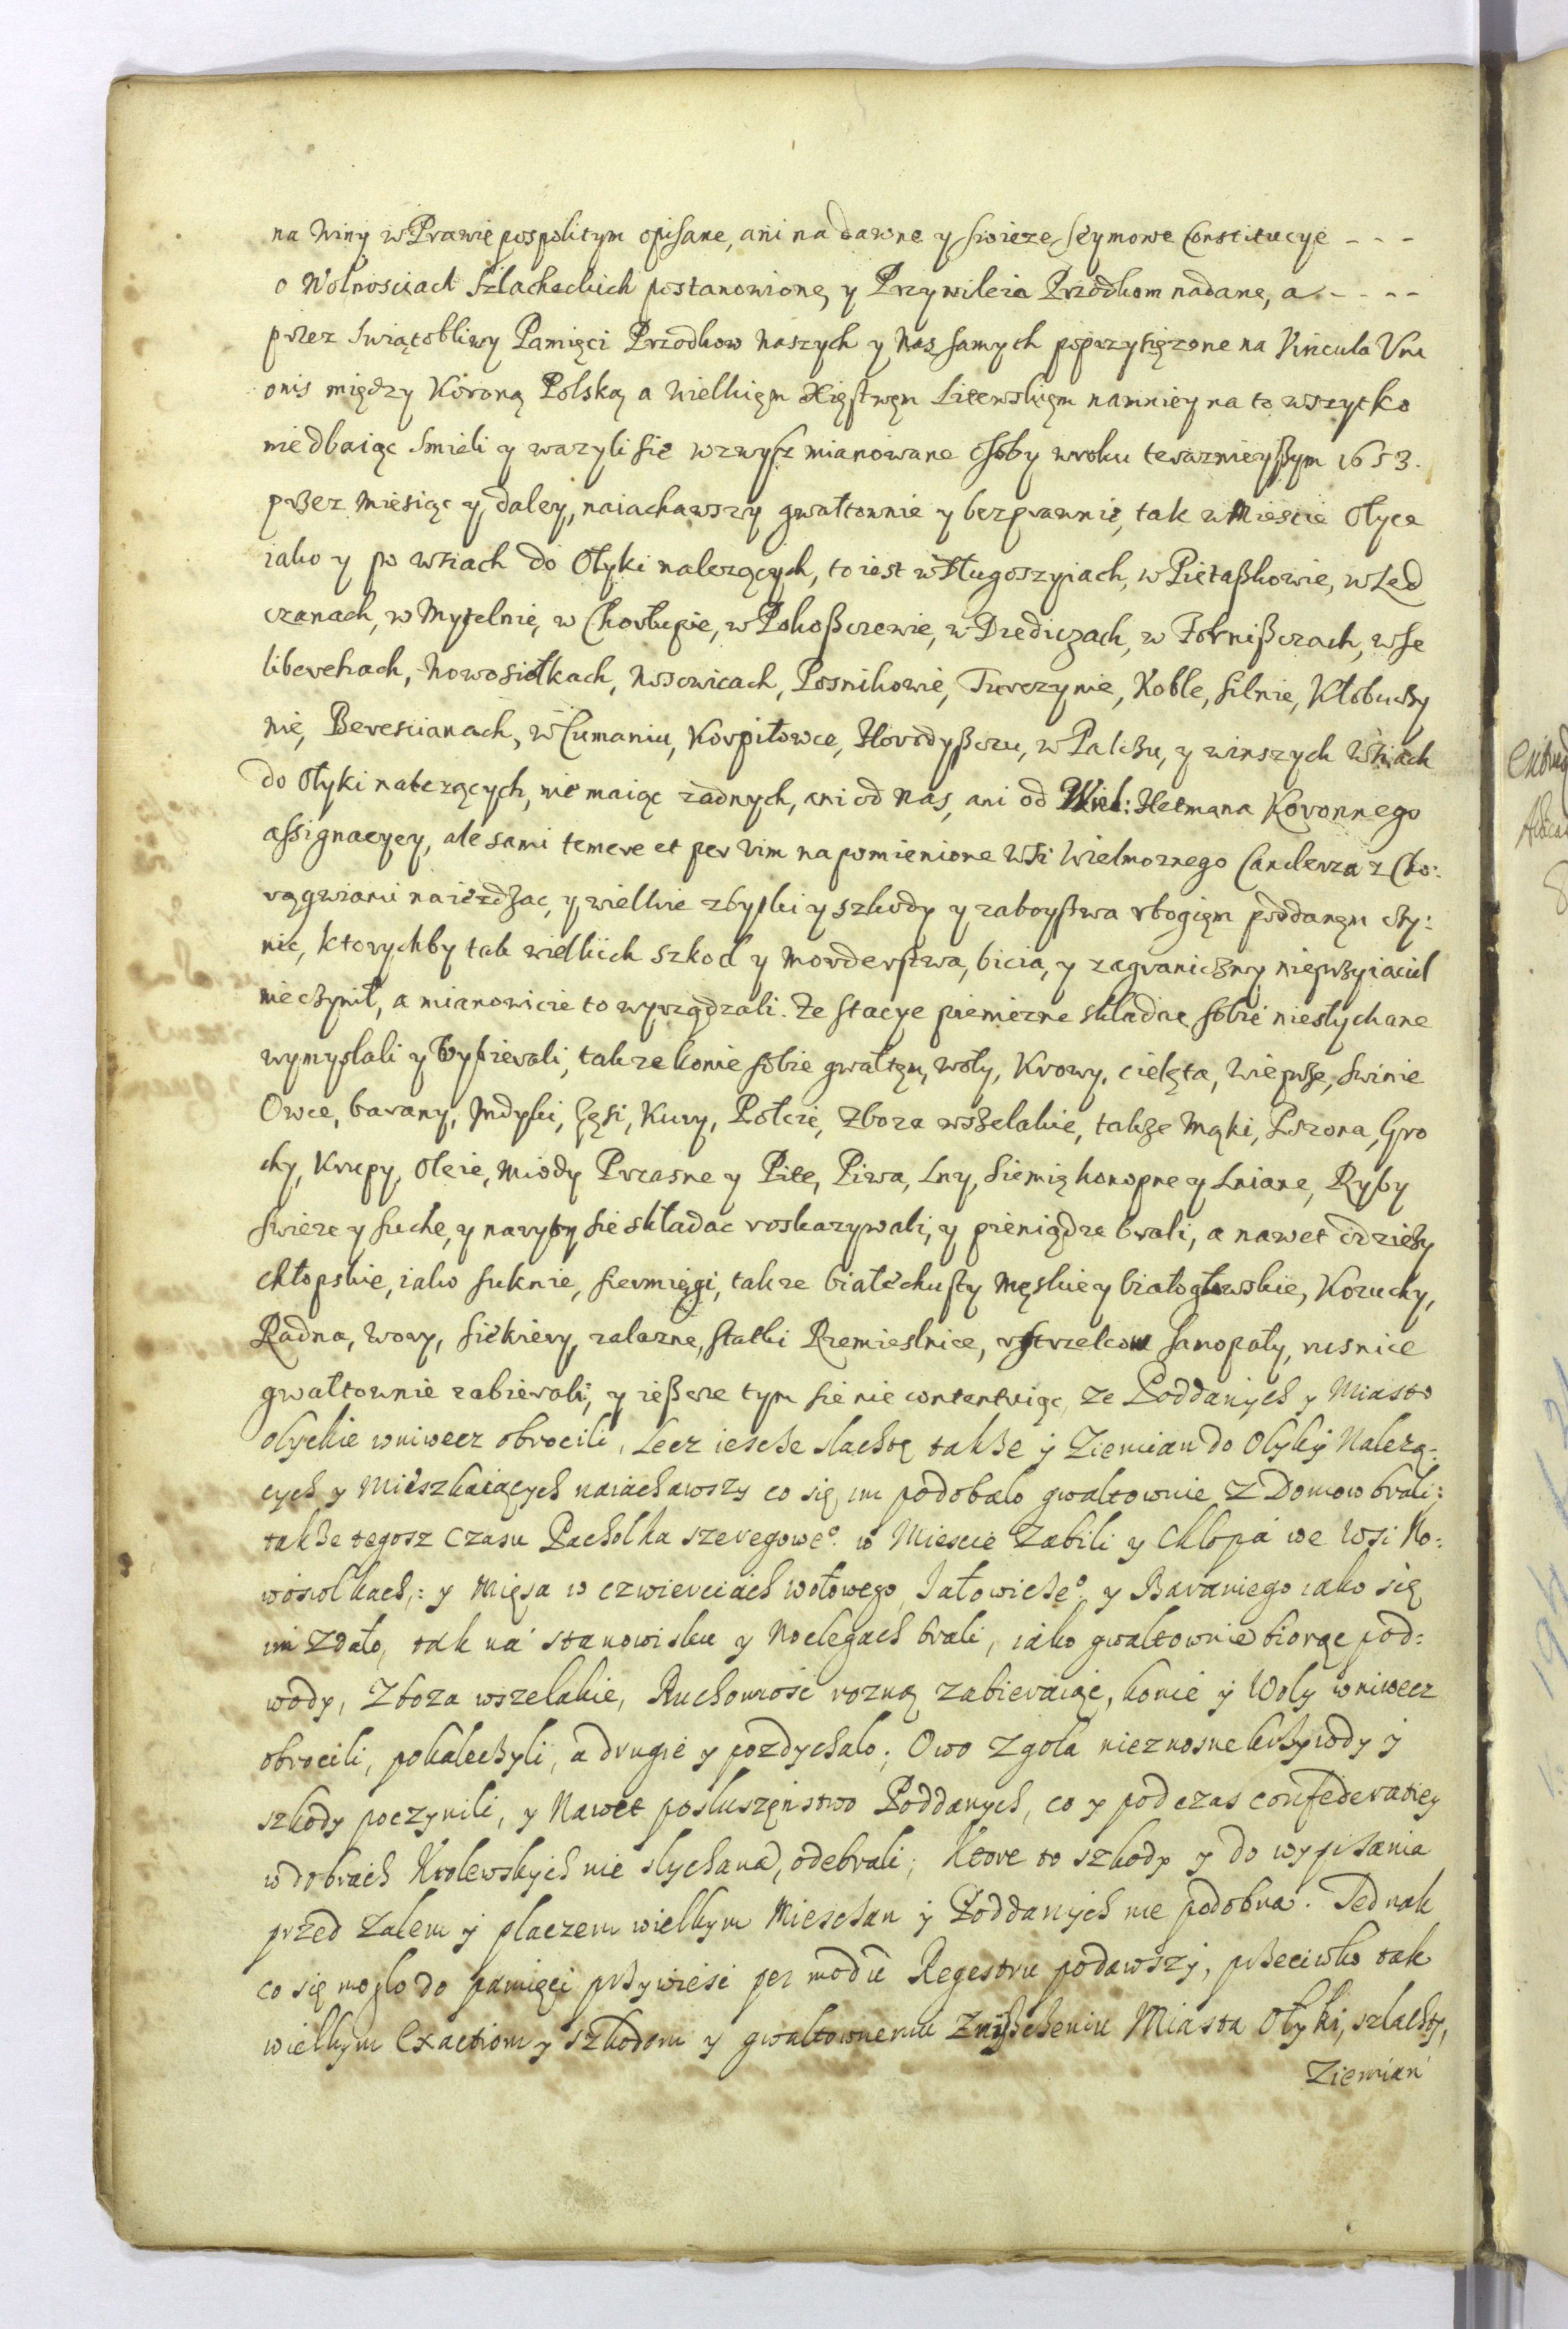 na Winy w Prawie pospolitym opisane, ani na dawne y swieze Seymowe Constitucye - - -
o Wolnosciach Szlacheckich postanowione, y Przywileia Przodkom nadane, a - - - -
przez Swiątobliwy Pamięci Przodkow Naszych y Nas samych poprzysięzone na Vincula Vni
onis między Koroną Polską a Wielkięm Xięstwęm Litewskięm namniey na to wszytko
nie dbaiąc Smieli y wazyli sie wzwysz mianowane osoby w roku terazniejszym 1653.
przez Miesiąc y daley, naiachawszy gwałtownie y bezprawnie, tak w Miescie Ołyce
iako y po wsiach do Ołyki nalezących, to iest w Długoszyiach, w Pietaßkowie, w Zed
czanach, w Mytelnie, w Chorłupie, w Pokoßczewie, w Dzediczach, w Fornißczach, w Se
liberehach, Nowosiołkach, Nosowicach, Posnikowie, Turczynie, Koble, Silnie, Kłobuczy
nie, Beresciankach, w Cumaniu, Korpiłowce, Horodyßczu, w Palczu, y w inszych Wsiach
do Ołyki nalezących, nie maiąc zadnych, ani od Nas, ani od Wiel: Hetmana Koronnego
assignacyey, ale sami temere et per vim na pomienione Wsi Wielmoznego Canclerza z Cho:
rągwiami naiezdzac, y wielkie zbytki y szkody y zaboystwa vbogięm poddanęm czy:
nic, ktorychby tak wielkich szkod y Morderstwa, bicia, y zagraniczny nieprzyiaciel
nie czynił, a mianowicie to wyrządzali. Ze stacye pieniezne składne sobie niesłychane
wymyslali y wybierali, takze konie sobie gwałtęm, woły, Krowy, cielęta, Wieprze, Swinie
Owce, barany, Indyki, Gęsi, Kury, Połcie, Zboza wszelakie, takze Mąki, Pszona, Gro
chy, Krupy, Oleie, Miody Przasne y Pite, Piwa, Lny, Siemię konopne y Lniane, Ryby
Swieze y suche, y na ryby sie składac roskazywali, y pieniądze brali, a nawet odziezy
chłopskie, iako suknie, siermięgi, takze białechusty Męskie y białogłowskie, Kozuchy,
Radna, Wory, Siekiery, zalazne, statki Rzemieslnice, v strzelcow Samopały, rusnice
gwałtownie zabierali, y ießcze tym sie nie contentuiąc, ze Poddanych y Miasto
olyckie wniwecz obrocili, Lecz iescze slachtę takze y Ziemian do Olyky Nalezą:
cych y Mieszkaiących naiachawszy co się im podobalo gwaltownie z Domow brali:
takze tegosz czasu Pacholka szeregoweo w Miescie Zabili y Chlopa we Wsi No:
wosiolkach: y Mięsa w czwierciach wołowego, Jałowiczeo, y Baraniego iako się
im zdało, tak na stanowisku y Noclegach brali, iako gwaltownie biorąc pod:
wody, Zboza wszelakie, Ruchomosc rozną zabieraiąc, konie y Woly wniwecz
obrocili, pokaleczyli, a drugie y pozdychalo; Owo Zgola nieznosne krzywody y
szkody poczynili, y Nawet posluszęnstwo Poddanych, co y podczas confederatiey
w dobrach Krolewskych nie slychana, odebrali; Ktore to szkody y do wypisania
przed Zalem y placzem wielkym Mieschan y Poddanych nie podobna. Jednak
co się moglo do pamięci przywiesc per modu Regestru podawszy, przeciwko tak
wielkym Exactiom y szkodom y gwaltownemu Znyscheniu Miasta Olyki, szlachty,
Ziemian